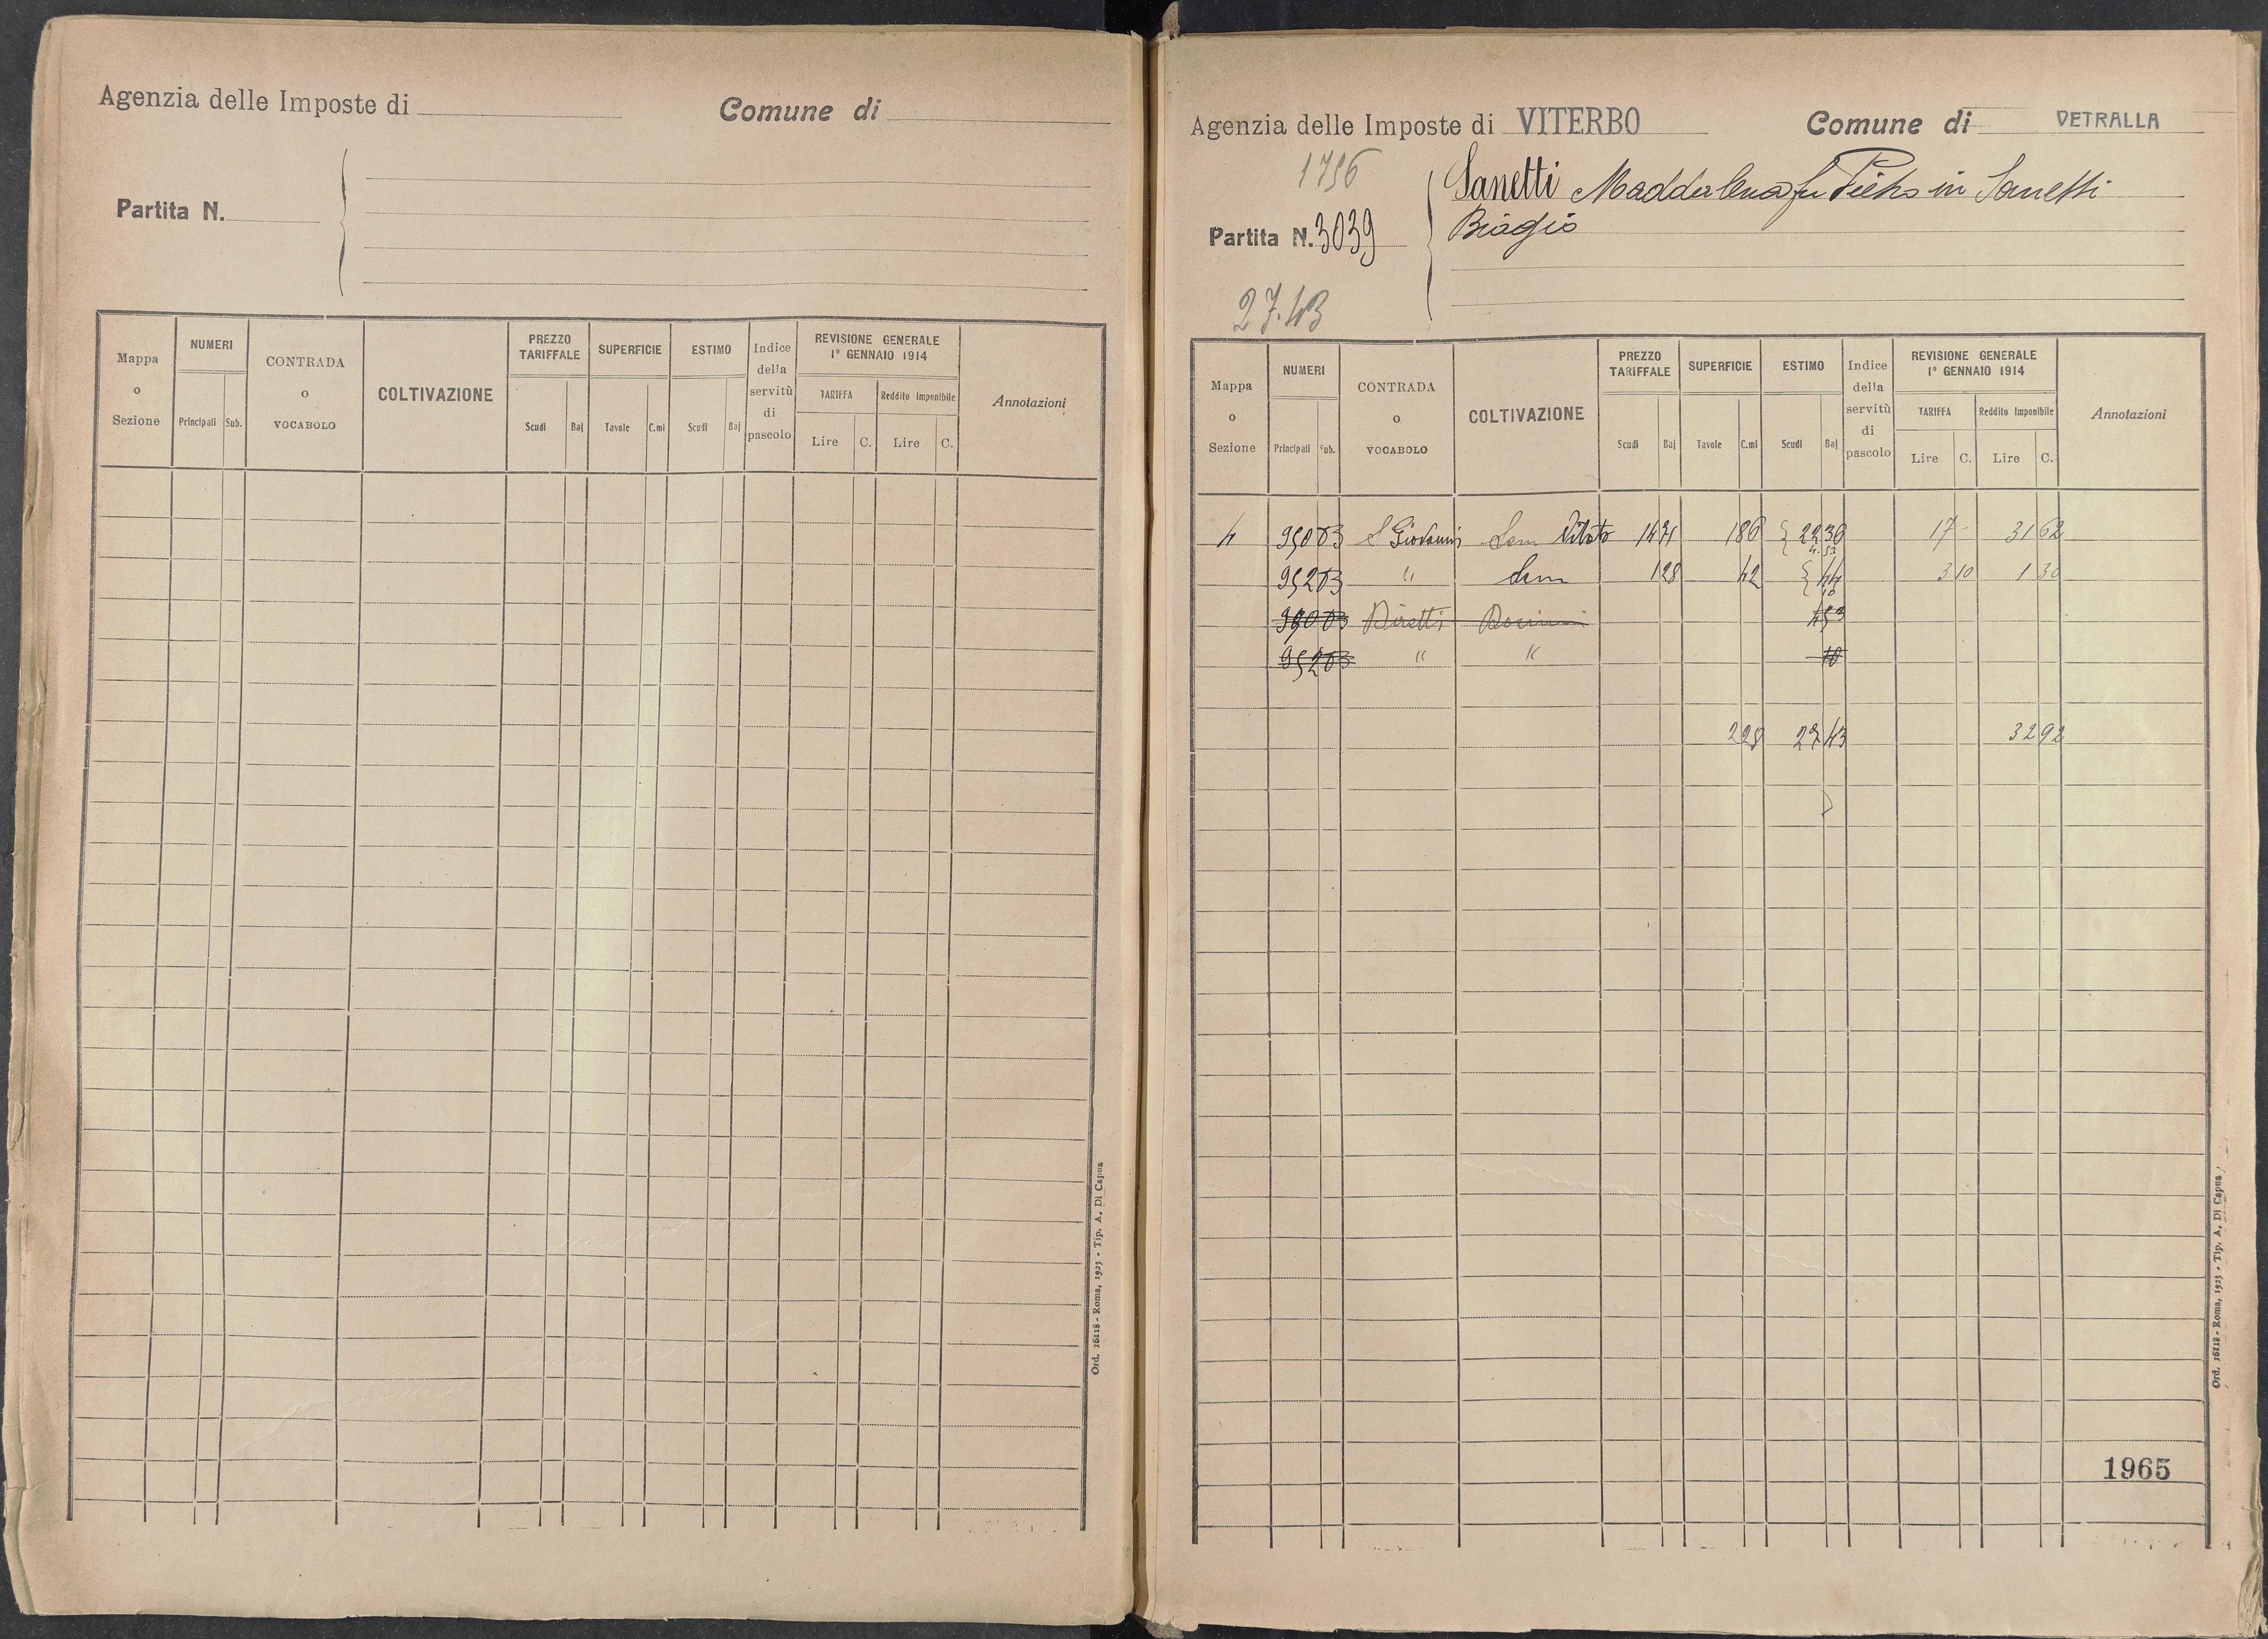 Agenzia delle Imposte di
Comune di
Partita N.
Mappa o Sezione
NUMERI
Principali Sub.
CONTRADA o VOCABOLO
COLTIVAZIONE
PREZZO TARIFFALE
Scudi Baj
SUPERFICIE
Tavole C.mi
ESTIMO
Scudi Baj
Indice della servitù di pascolo
REVISIONE GENERALE 1° GENNAIO 1914
TARIFFA Reddito Imponibile
Lire C. Lire C.
Annotazioni
Ord. 16118 - Roma, 1923 - Tip. A. Di Capua
Agenzia delle Imposte di VITERBO
Comune di VETRALLA
1756
Partita N. 3039
Sanetti Maddalena fu Pietro in Sanetti
Biagio
27.43
Mappa o Sezione
NUMERI
Principali Sub.
CONTRADA o VOCABOLO
COLTIVAZIONE
PREZZO TARIFFALE
Scudi Baj
SUPERFICIE
Tavole C.mi
ESTIMO
Scudi Baj
Indice della servitù di pascolo
REVISIONE GENERALE 1° GENNAIO 1914
TARIFFA Reddito Imponibile
Lire C. Lire C.
Annotazioni
4 S Giovanni Sem Vitato 186 22 30 17 - 31 62
4.53
" Sem 1 28 42 44 3 10 1 30
10
Diretti 4 53
" " 10
2 28 27 43 32 92
1965
Ord. 16118 - Roma, 1923 - Tip. A. Di Capua